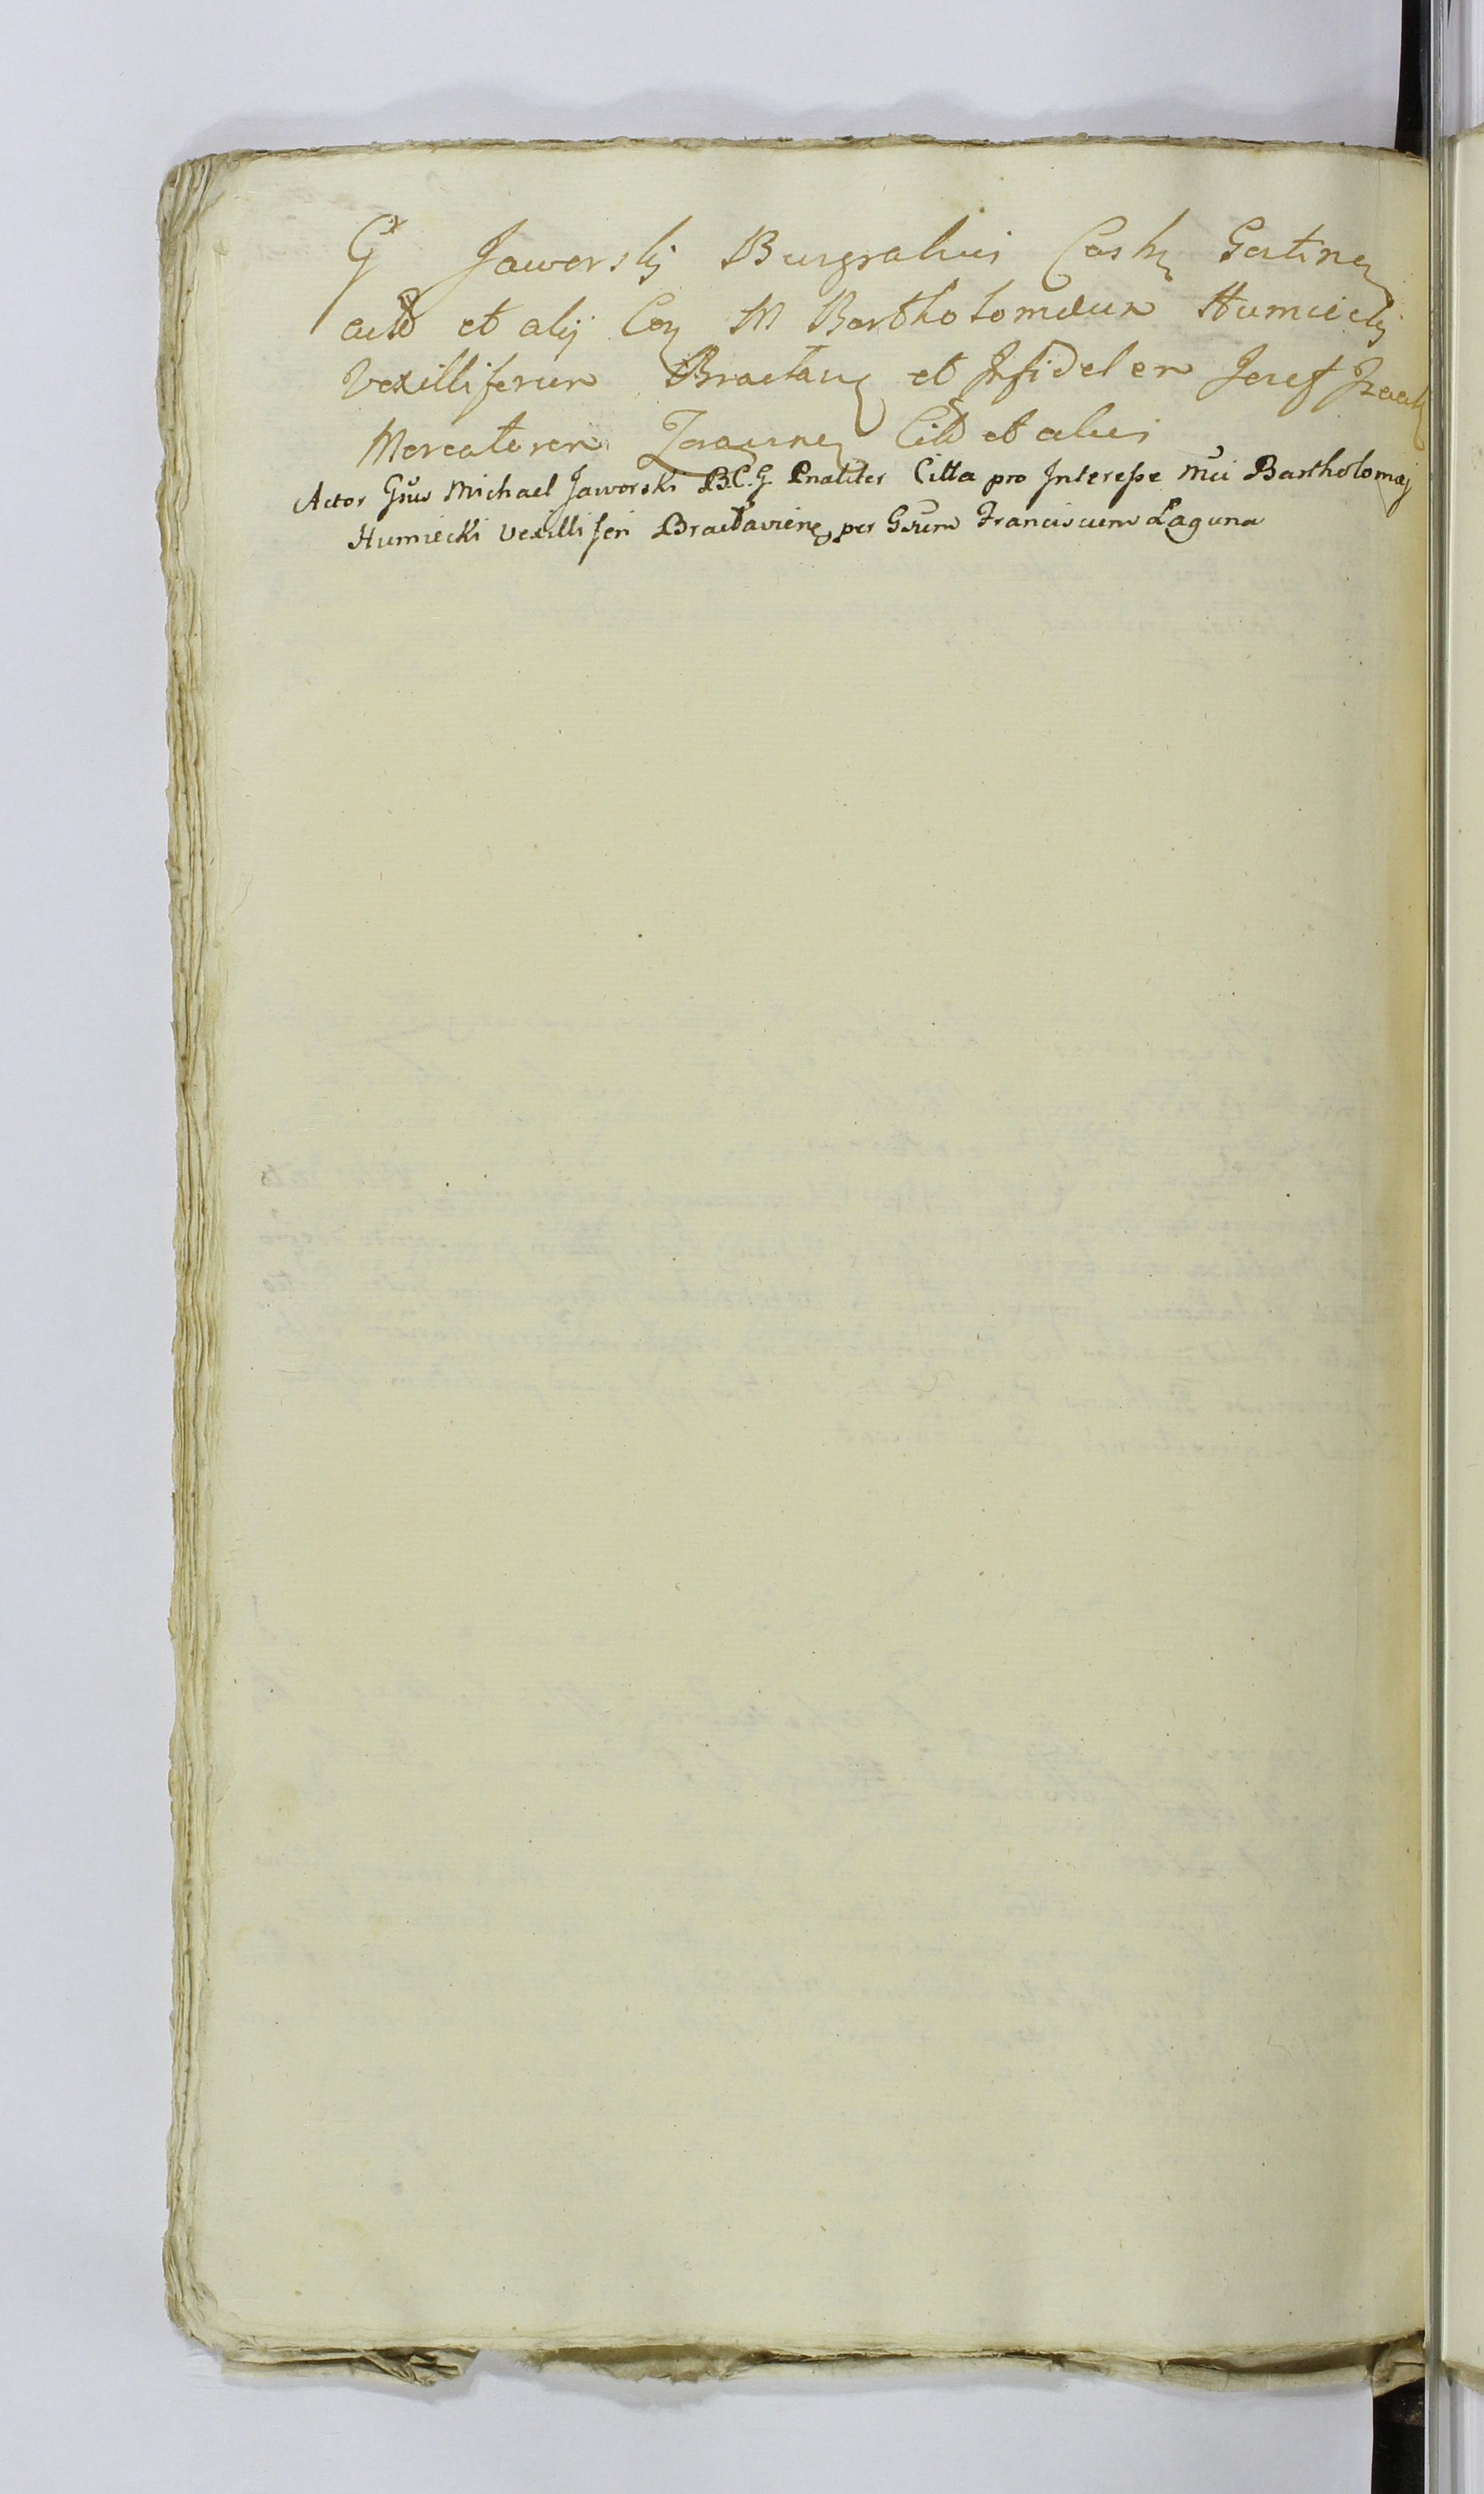 G Jaworskj Burgrabius Castr Gertinen
acto et alij Con M Bartholomeum Humieckj
Vexilliferum Braclaun et Infidelem Josef Izaak
Mercatorem Toraunen Citto et alius
Actor Gnus Michael Jaworski B.C.G. Pnaliter Citta pro Interesse Mci Bartholomej
Humiecki Vexilliferi Braclavien per Gsum Franciscum Laguna